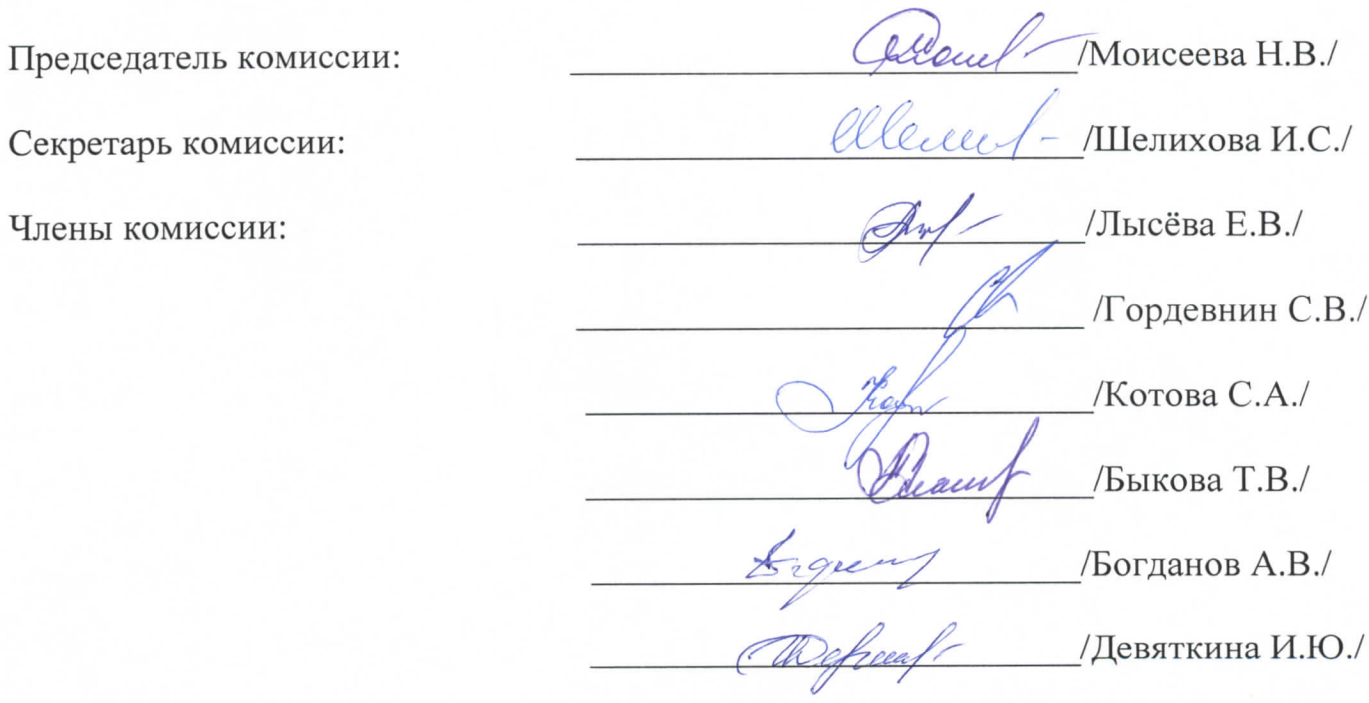 Председатель комиссии: /Моисеева Н.В./
Секретарь комиссии: /Шелихова И.С./
Члены комиссии: /Лысёва Е.В./
/Гордевнин С.В./
/Котова С.А./
/Быкова Т.В./
/Богданов А.В./
/Девяткина И.Ю./